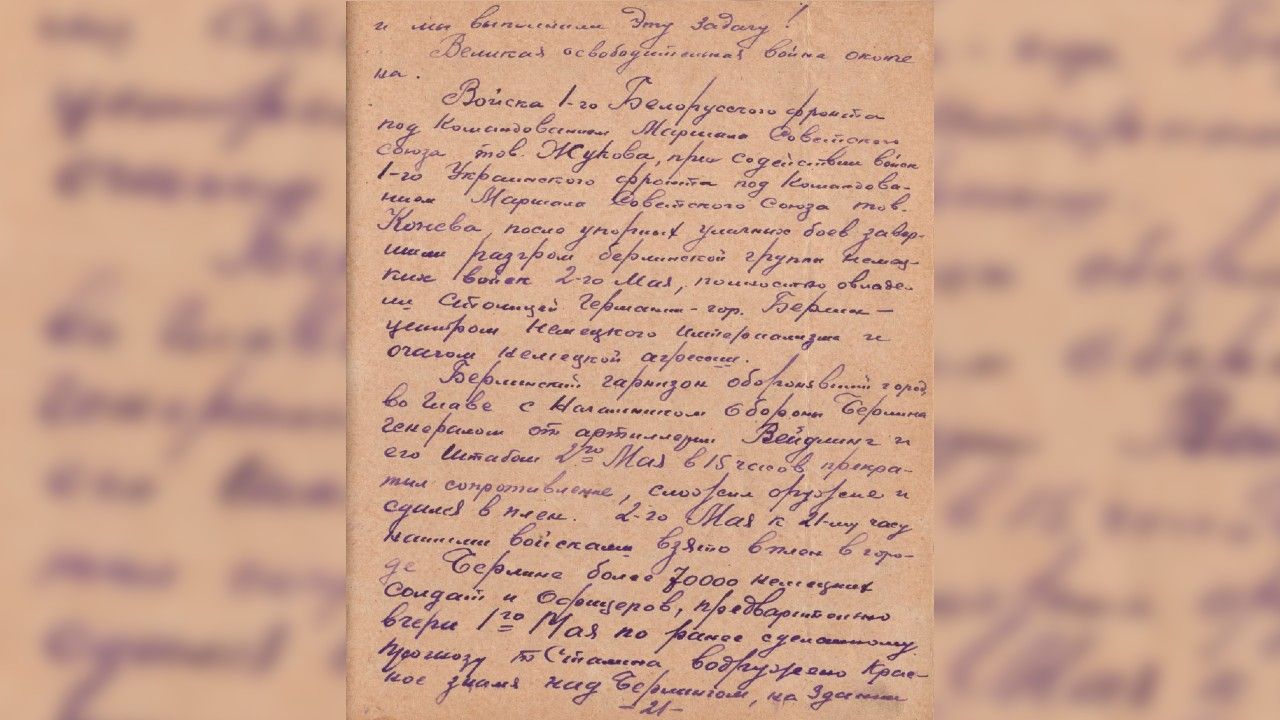 и мы выполнили эту задачу!
Великая освободительная война оконче
на.
Войска 1-го Белорусского фронта
под Командованием Маршала Советского
Союза тов. Жукова, при содействии войск
1-го Украинского фронта под Командова-
нием Маршала Советского Союза тов.
Конева, после упорных уличных боев завер-
шили разгром берлинской группы немец-
ких войск 2-го Мая, полностью овладе-
ли Столицей Германии - гор. Берлин —
центром Немецкого империализма и
очагом немецкой агресии.
Берлинский гарнизон оборонявший город
во главе с Начальником Обороны Берлина
генералом от артиллерии Вейдлинг и
его штабом 2го Мая в 15 часов прекра-
тил сопротивление, сложил оружие и
сдался в плен. 2-го Мая к 21-му часу
нашими войсками взято в плен в горо-
де Берлине более 70000 немецких
солдат и Офицеров, предварительно
вчера 1го Мая по ранее сделанному
прогнозу т Сталина водружено Крас-
ное знамя над Берлином, на Здании
-21-